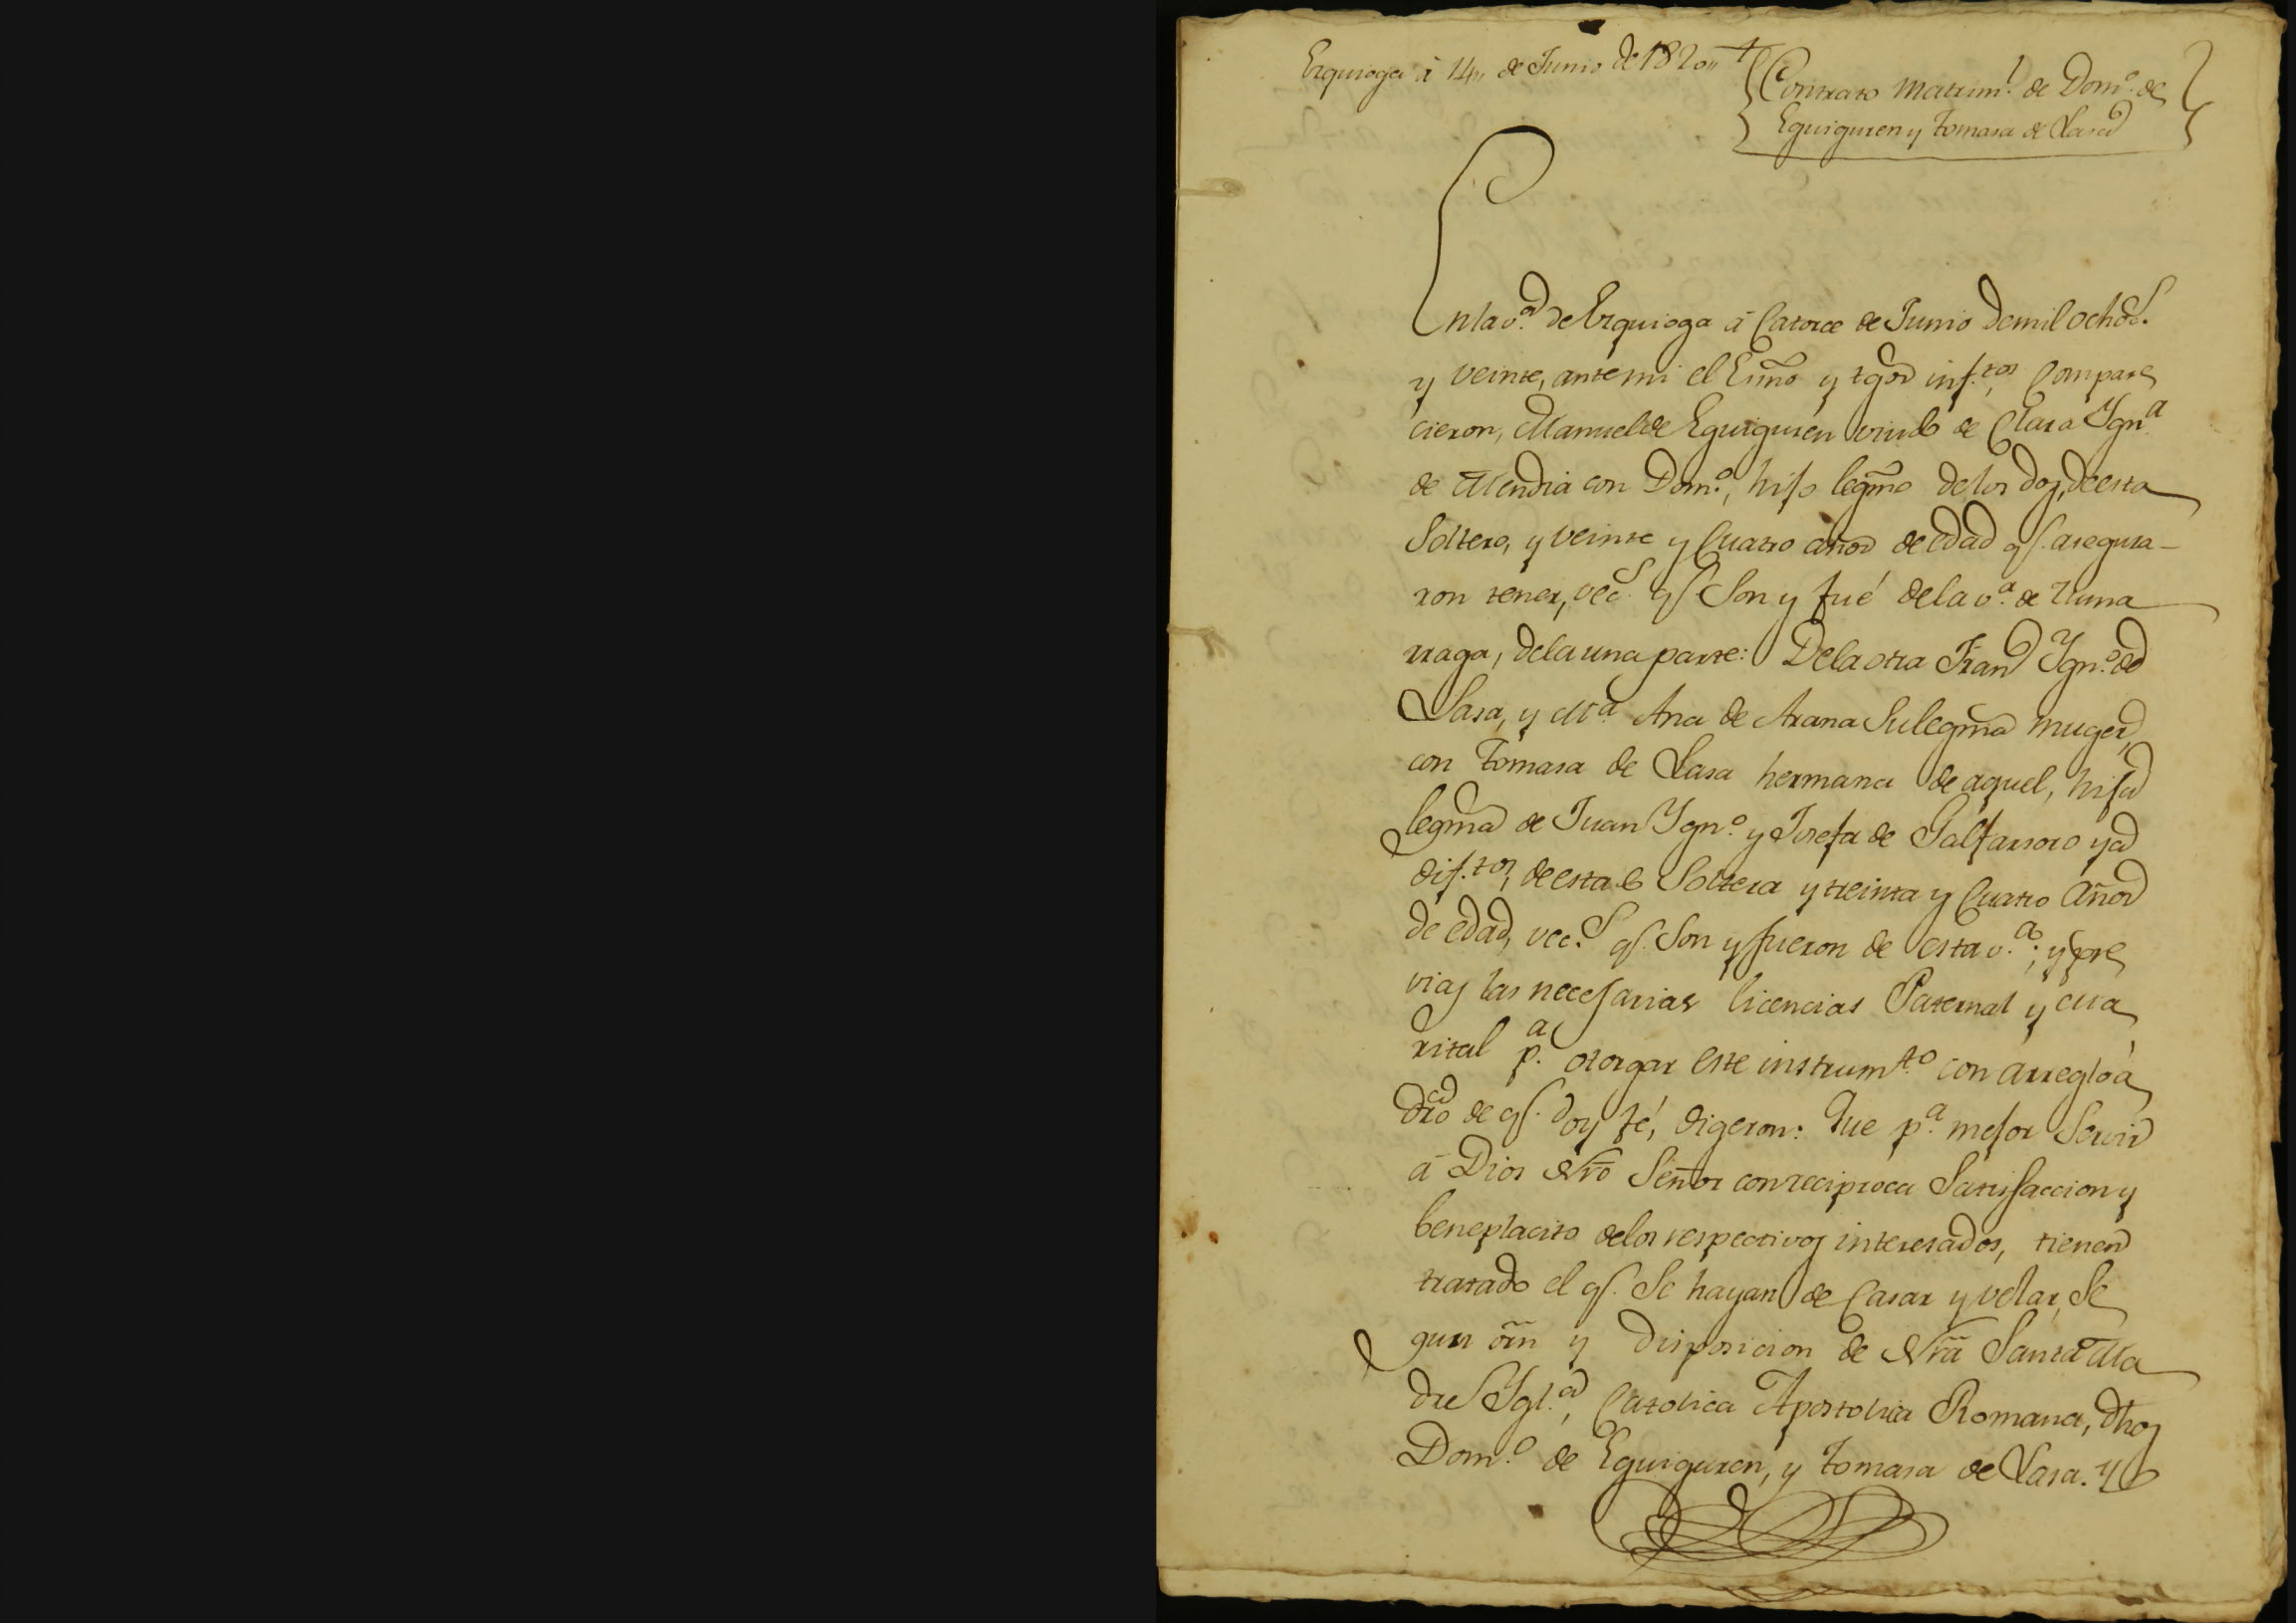 Ezquioga à 14,, de Junio de 1820,, +
Contrato Matrim.l de Dom.o de
Eguiguren y Tomasa de Lasa
En la v.a de Ezquioga à Catorce de Junio de mil ochoc.s
y veinte, ante mi el Esno y tgos inf.tos Compare
cieron, Manuel de Eguiguren viudo de Clara Ygn.a
de Mendia con Dom.o, hijo legmo de los dos, de estado
Soltero, y veinte y Cuatro años de edad q.e asegura-
ron tener, vec.s q.e Son y fué de la v.a de Zuma
rraga, de la una parte: De la otra Fran.co Ygn.o de
Lasa, y M.a Ana de Arana Su legma muger,
con Tomasa de Lasa hermana de aquel, hija
legma de Juan Ygn.o y Josefa de Galfarsoro ya
dif.tos, de estado Soltera y treinta y Cuatro años
de edad, vec.s q.e Son y fueron de esta v.a; y pre
vias las necesarias licencias Paternal y ma
rital p.a otorgar este instrum.to con arreglo à
dro de q.e doy fé, digeron: Que p.a mejor Servir
à Dios Nro Señor con reciproca Satisfaccion y
beneplacito de los respectivos interesados, tienen
tratado el q.e Se hayan de Casar y velar, Se
gun orn y disposicion de Nra Santa Ma
dre Ygl.a, Catolica Apostolica Romana, dhos
Dom.o de Eguiguren, y Tomasa de Lasa. y